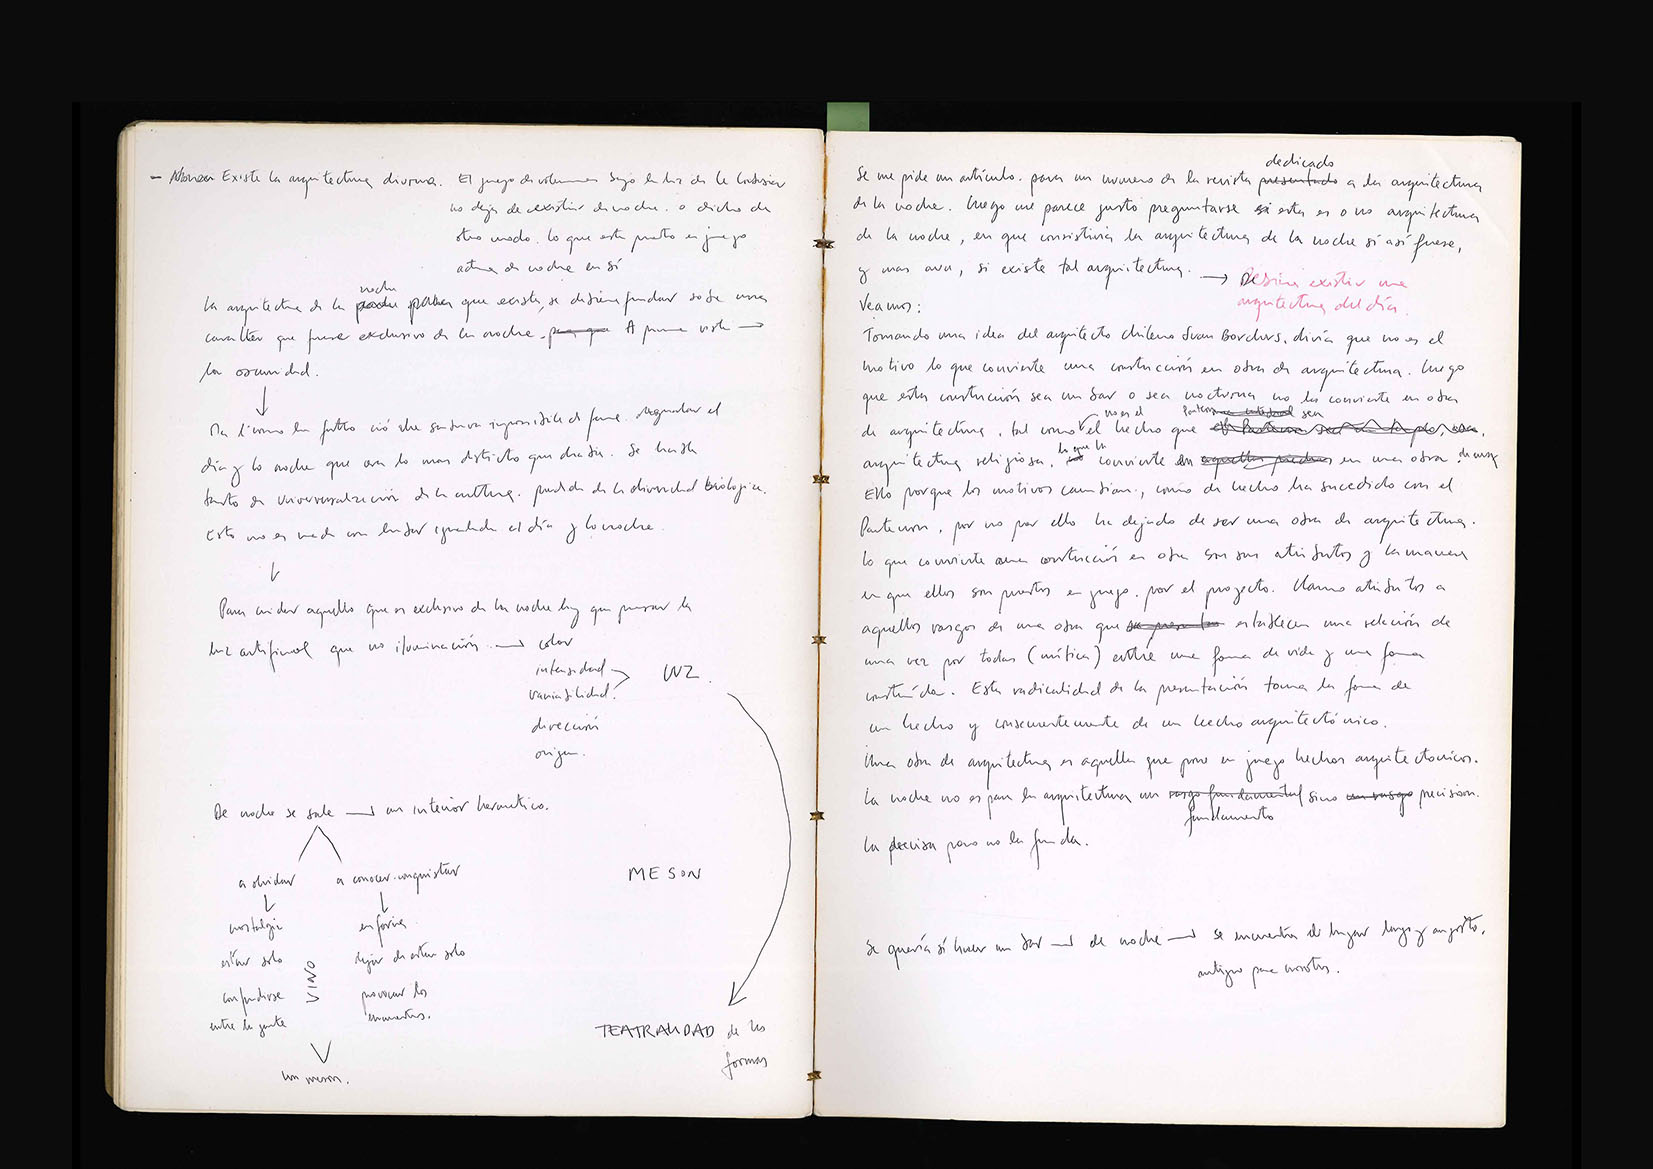 – Existe la arquitectura diurna. El juego de volumenes bajo la luz de
no deja de existir de noche. o dicho de
otro modo. lo que esta puesto en juego
actua de noche en sí
noche
La arquitectura de la que existe, se debiera fundar sobre una
caracter que fuese exclusivo de la noche. A primera vista →
la oscuridad.
día y la noche que era lo mas distinto que había. Se habla
tanto de universalización de la cultura. perdida de la diversidad biológica.
Esto no es nada con haber igualado el día y la noche.
Para cuidar aquello que es exclusivo de la noche hay que pensar la
luz artificial que no iluminación. → color
intensidad
variabilidad.
LUZ.
dirección
origen.
De noche se sale → un interior hermetico.
a olvidar a conocer. conquistar
nostalgia
estar solo
confundirse
entre la gente
VINO
dejar de estar solo
provocar los
encuentros.
un meson.
MESON
TEATRALIDAD de las
formas
dedicado
Se me pide un artículo. para un numero de la revista presentado a la arquitectura
de la noche. Luego me parece justo preguntarse si esta es o no arquitectura
de la noche, en que consistiría la arquitectura de la noche si así fuese,
y mas aun, si existe tal arquitectura. → Debiera existir una
arquitectura del día.
Veamos:
Tomando una idea del arquitecto chileno Juan Borchers, diría que no es el
motivo lo que convierte una construcción en obra de arquitectura. Luego
que esta construcción sea un bar o sea nocturna no la convierte en obra
no es el sea
de arquitectura, tal como el hecho que
lo que la
arquitectura religiosa, convierte en aquellas piedras en una obra.
Ello porque los motivos cambian, como de hecho ha sucedido con el
Partenon, por no por ello ha dejado de ser una obra de arquitectura.
Lo que convierte una construcción en obra son sus atributos y la manera
en que ellos son puestos en juego. por el proyecto. Llamo atributos a
aquellos rasgos de una obra que establecen una relación de
una vez por todas (mítica) entre una forma de vida y una forma
construida. Esta radicalidad de la presentación toma la forma de
un hecho y consecuentemente de un hecho arquitectónico.
Una obra de arquitectura es aquella que pone en juego hechos arquitectonicos.
La noche no es para la arquitectura un rasgo fundamental sino un rasgo precision.
fundamento
La precisa pero no la funda.
Se quería sí hacer un bar → de noche → se encuentra el lugar largo y angosto,
antiguo para nosotros.